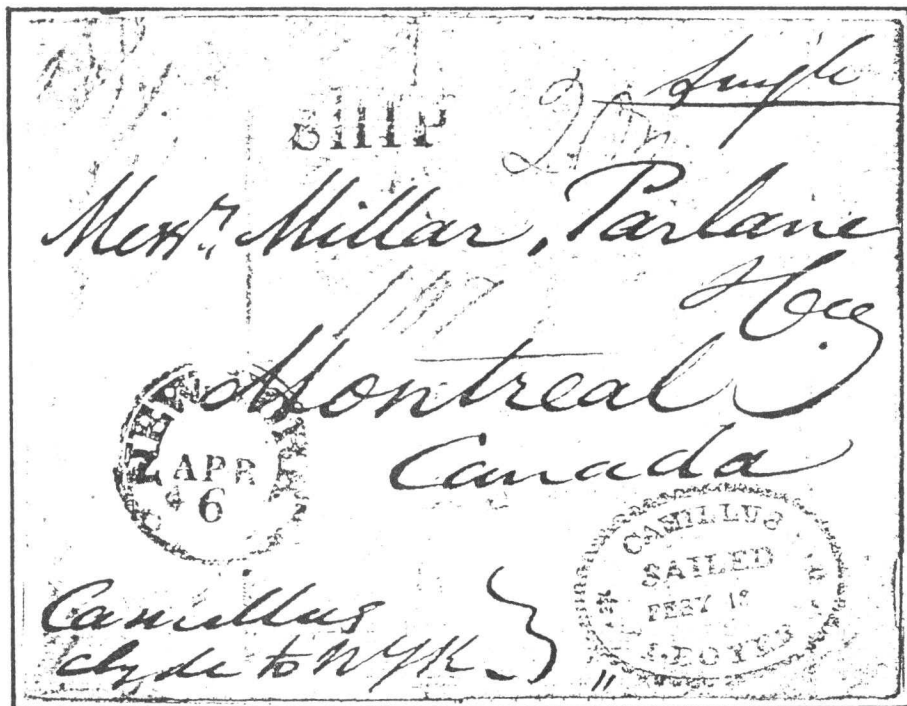 Single
SHIP
Messrs. Millar, Parlane
& Co
Montreal
Canada
NEW
APR
6
CAMILLUS
SAILED
FEBY 18
Camillus
Clyde to N York